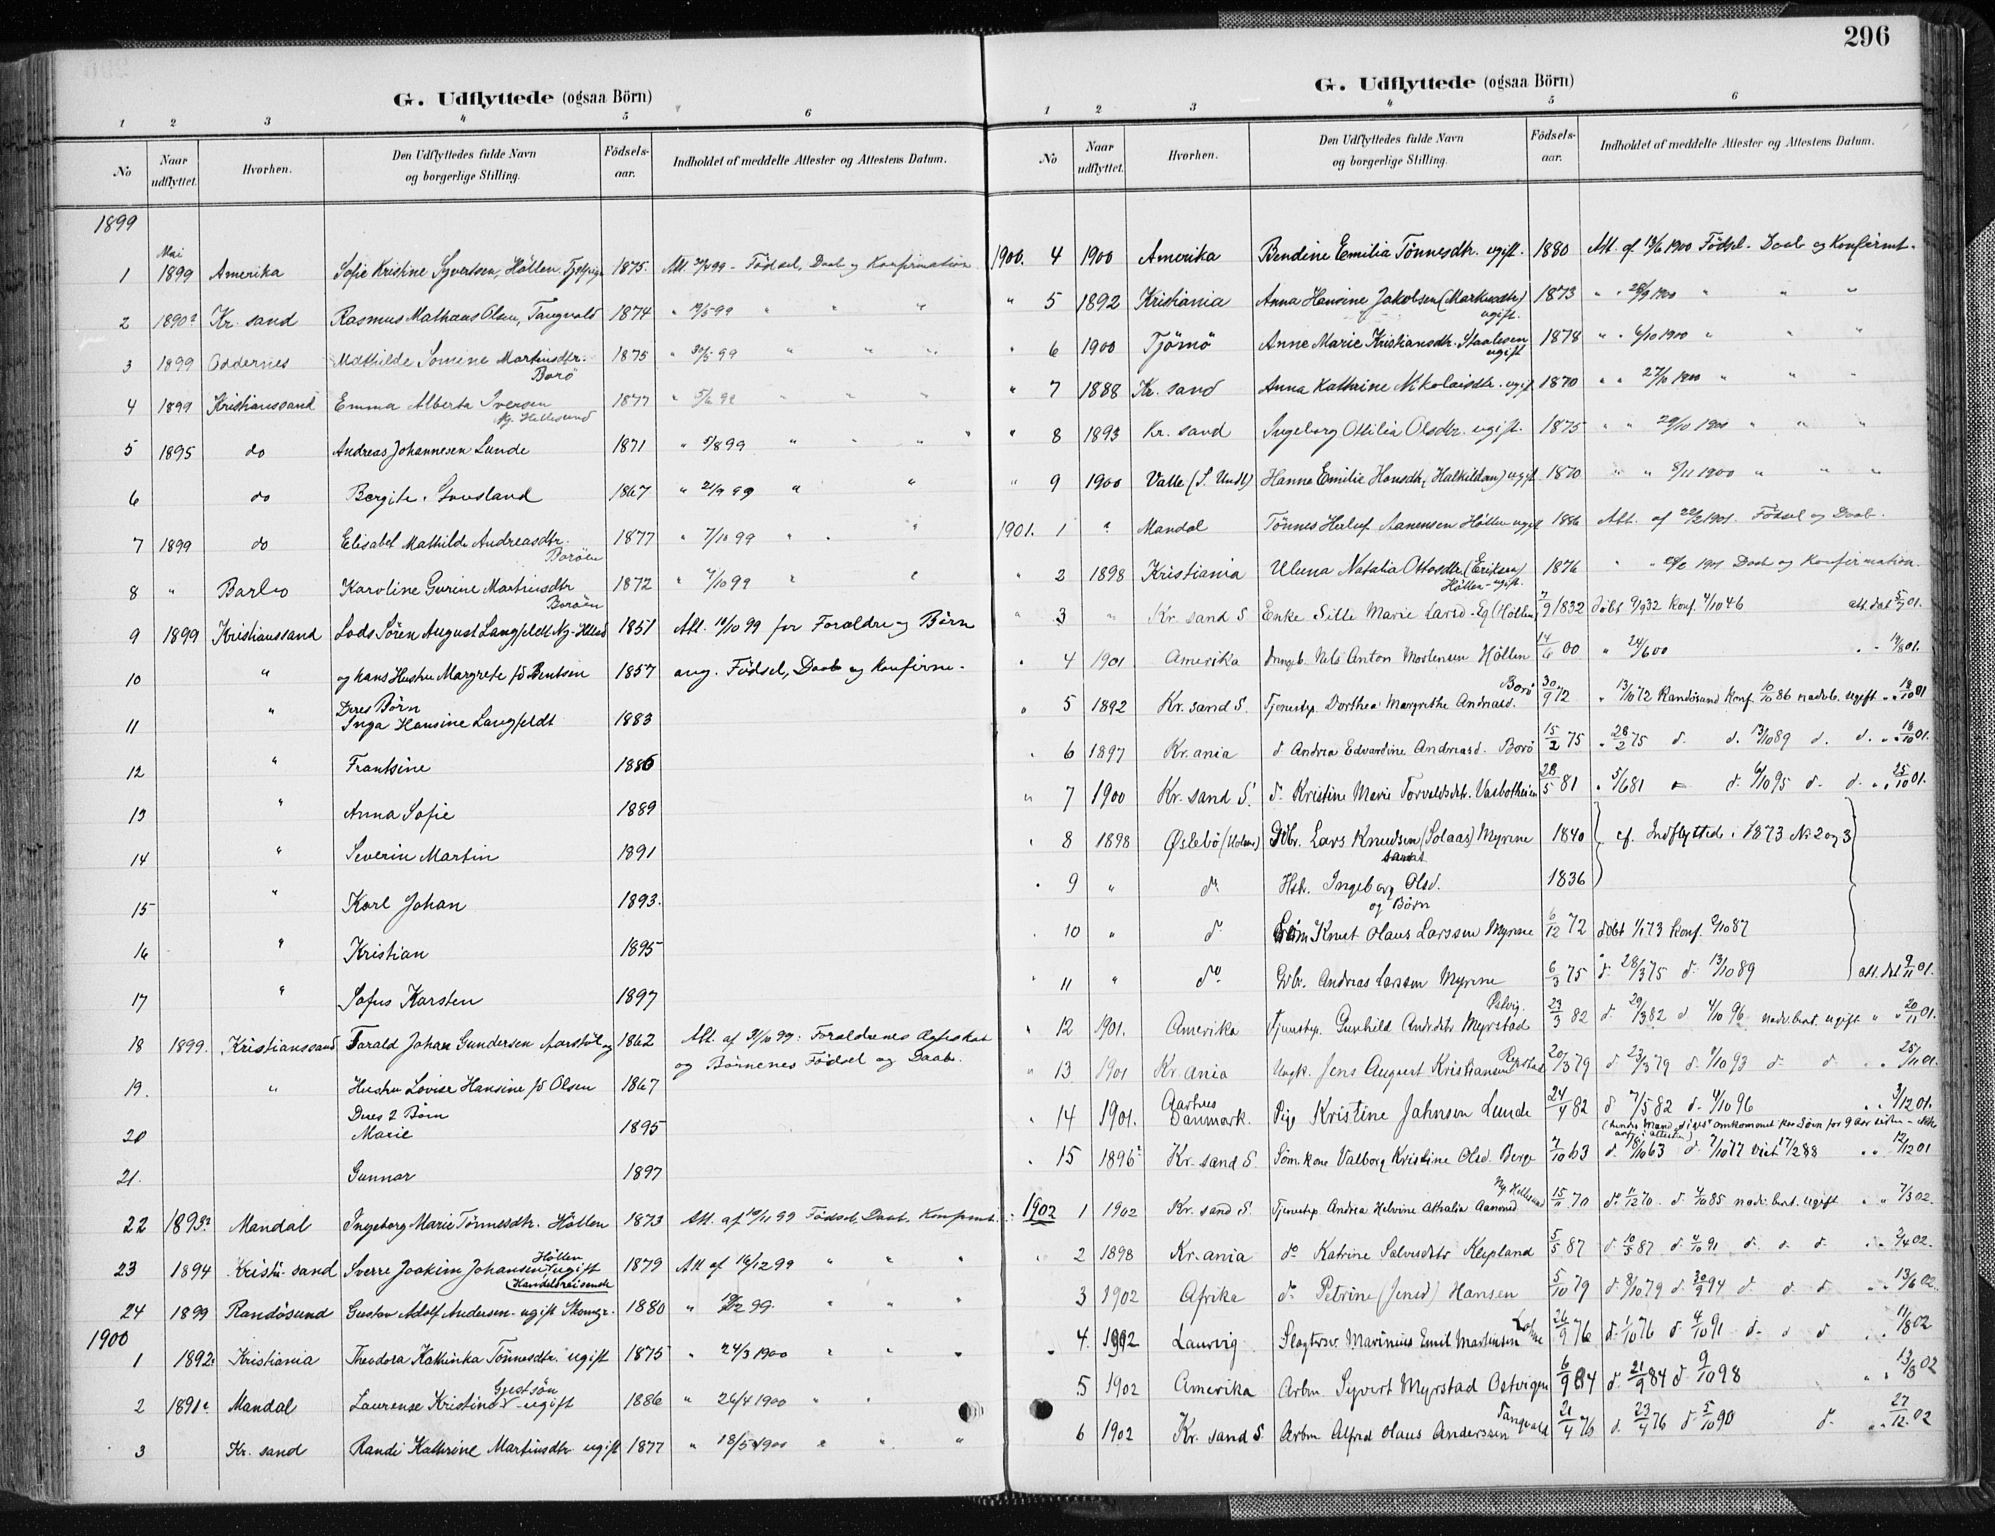 296
G. Udflyttede (ogsaa Börn)
1 2 3 4 5 6
No Naar udflyttet. Hvorhen. Den Udflyttedes fulde Navn og borgerlige Stilling. Födsels-aar. Indholdet af meddelte Attester og Attestens Datum.
1899
1 Mai 1899 Amerika Sofie Kristine Syvertsen, Höllen 1875. Att. 99 - Födsel, Daab og Konfirmation
2 1890? Kr. sand Rasmus Mathæus Olsen, Tangvald 1874 " 99 " " "
3 1899 Oddernes Mathilde Somine Martinsdtr. Borö 1875 " 30/5 99 " " "
4 1899 Kristianssand Emma Alberta Iversen Ny. Hellesund 1877 " 5/6 99 " " "
5 1895 do Andreas Johannesen Lunde 1871 " 5/8 99 " " " "
6 do Bergite 1867 " 21/9 99 " "
7 1899 do Elisabet Mathilde Andreasdtr. Boröen 1877 " 7/10 99 " " "
8 " Karoline Gurine Martinsdtr Boröen 1872 " 7/10 99 " "
9 1899 Kristianssand Lods Sören August Langfeldt Ny-Hlsd 1851 Att. 10/10 99 for Forældre og Börn
10 " og hans Hustru Margrete fö Bentsen 1857 ang. Födsel, Daab og Konfirm-
Deres Börn
11 " Inga Hansine Langfeldt 1883
12 " Frantsine 1886
13 " Anna Sofie 1889
14 " Severin Martin 1891
15 " Karl Johan 1893.
16 " Kristian 1895
17 " Sofus Karsten 1897
18 1899. Kristianssand Tarald Johan Gundersen Aarstöl og 1862 Att. af 31/10 99: Forældrenes Ægteskab
og Börnenes Födsel og Daab.
19. " Hustru Lovise Hansine fö Olsen 1867
Deres 2 Börn
20 Marie 1895
21. Gunnar 1897
22 1893? Mandal Ingeborg Marie Tönnesdtr. Höllen 1873 Att. af 10/11 99 Födsel, Daab, Konfirmt.
23 1894 Kristi. sand Sverre Joakim Johansen Höllen ugift (Handelsreisende 1879 Att af 16/12 99 " " "
24 1899 Randösund Gustav Adolf Andersen - ugift Skomgr. 1880 " 99. " " "
1900
1 1892. Kristiania Theodora Kathinka Tönnesdtr. ugift 1875 " 24/3 1900 " " "
2 1891? Mandal Laurense Kristine Gjestsön - ugift 1886 " 26/4 1900 " "
3 Kr. sand Randi Kathrine Martinsdtr ugift 1877 " 18/5 1900 " " "
G. Udflyttede (ogsaa Börn)
1 2 3 4 5 6
No Naar udflyttet. Hvorhen. Den Udflyttedes fulde Navn og borgerlige Stilling. Födsels-aar. Indholdet af meddelte Attester og Attestens Datum.
1900. 4 1900 Amerika Bendine Emilia Tönnesdtr. ugift. 1880 Att. af 13/6 1900 Födsel - Daab og Konfirmt.
" 5 1892 Kristiania Anna Hansine Jakobsen (Markusdtr) ugift. 1873 " " 28/9 1900 " " "
" 6 1900 Tjömö Anne Marie Kristiansdtr. Staalesen ugift 1878 " " 6/10 1900 " " "
" 7 1888 Kr. sand Anna Kathrine Nikolaisdtr. ugift 1870 " " 27/10 1900 " " "
" 8 1893 Kr. sand Ingeborg Ottilia Olsdtr. ugift. 1875 " " 29/10 1900 " " "
" 9 1900 Valle (S. Undl) Hanne Emilie Hansdtr. ugift 1870 " " 8/11 1900 " " "
1901. 1 " Mandal Tönnes Herluf Aanensen Höllen ugift 1886 Att. af 22/2 1901. Födsel og Daab.
" 2 1898 Kristiania Natalia Ottosdtr (Eriksen) Höllen - ugift. 1876 " " 1901 Daab og Konfirmation.
" 3 " Kr. sand S Enke Sille Marie Larsd - Eg (Höllen) 7/9 1832 döbt 9/9 32 konf. 4/10 46 att. dat 5/7 01.
" 4 1901 Amerika Anton Mortensen Höllen 14/6 00 " 24/6 00 " . 19/8 01.
" 5 1892 Kr. sand S. Tjenestep. Dorthea Margrethe Andreasd. Borö 30/9 72 " 13/10 72 Randösund konf 10/10 86 nadvb. ugift " . 18/10 01
" 6 1897 Kr. ania d Andrea Edvardine Andreasd. Borö 15/2 75 " 28/2 75 d. d. 13/10 89 d. d. " . 18/10 01.
" 7 1900 Kr. sand S. d. Kristine Marie Torvaldsdtr. Vasbotheien 28/5 81 " 5/6 81 d. 6/10 95 d. d. " . 25/10 01.
" 8 1898 Øslebö (Holme) Gdbr. Lars Knudsen (Solaas) Myrene 1840 cf. Indflyttede i 1873 No 2 og 3
" 9 " do Hstr. Ingeborg Olsd. 1836
og Børn
" 10 " d. Knut Olaus Larssen Myrene 6/12 72 döbt 1/1 73 konf. 2/10 87
" 11 " do. Gdbr. Andreas Larssen Myrene 6/3 75 d. 28/3 75 d. 13/10 89 att. dat 9/11 01.
" 12 1901. Amerika Tjenestep. Gunhild Andrdtr Myrstad Østvig. 23/3 82 d. 29/3 82 d 4/10 96 nadv. ber. ugift " " 20/11 01.
" 13 1901 Kr. ania Ungk. Jens August Kristiansen Repstad 20/3 79 d 23/3 79 d. 1/10 93 d. d " . 25/11 01.
" 14 1901. Aarhus Danmark. Pige Kristine Jahnsen Lunde 24/4 82 d 7/5 82 d. 4/10 96 " . 3/12 01.
(hendes Mand siges omkommet paa Söen for 9 Aar siden - ikke anf. i attesten)
" 15 1896? Kr. sand S. Söm. kone Valborg Kristine Olsd. Berge 7/10 63 d. 18/10 63 d 7/10 77 viet 17/2 88 " . 12/12 01
1902 1 1902 Kr. sand S. Tjenestep. Andrea Helvine Athalia Aanensd Ny Hellesund 15/11 70 do. 11/12 70 d. 4/10 85 nadv. ber. ugift " " 7/3 02.
" 2 1898 Kr. ania do Katrine Salvesdtr Klepland 5/5 87 d. 10/5 87 d. 4/10 91 d. d. d. " . 3/4 02.
3 1902 Afrika do Petrine (Jensd) Hansen 5/10 79 d. 8/10 79 d. 30/9 94 d. d. d. " . 13/6 02.
" 4. 1902 Laurvig Slagtersv. Marinius Emil Martinsen 26/9 76 d. 1/10 76 d. 4/10 91 d. d d " . 11/8 02
5 1902 Amerika Arbm Syvert Myrstad Østvigen 6/9 84 d. 21/9 84 d 9/10 98 " . 13/8 02
6 1902 Kr. sand S. Arbm Alfred Olaus Anderssen Tangvald 21/4 76 d. 23/4 76 d 5/10 90 d. " . 27/12 02